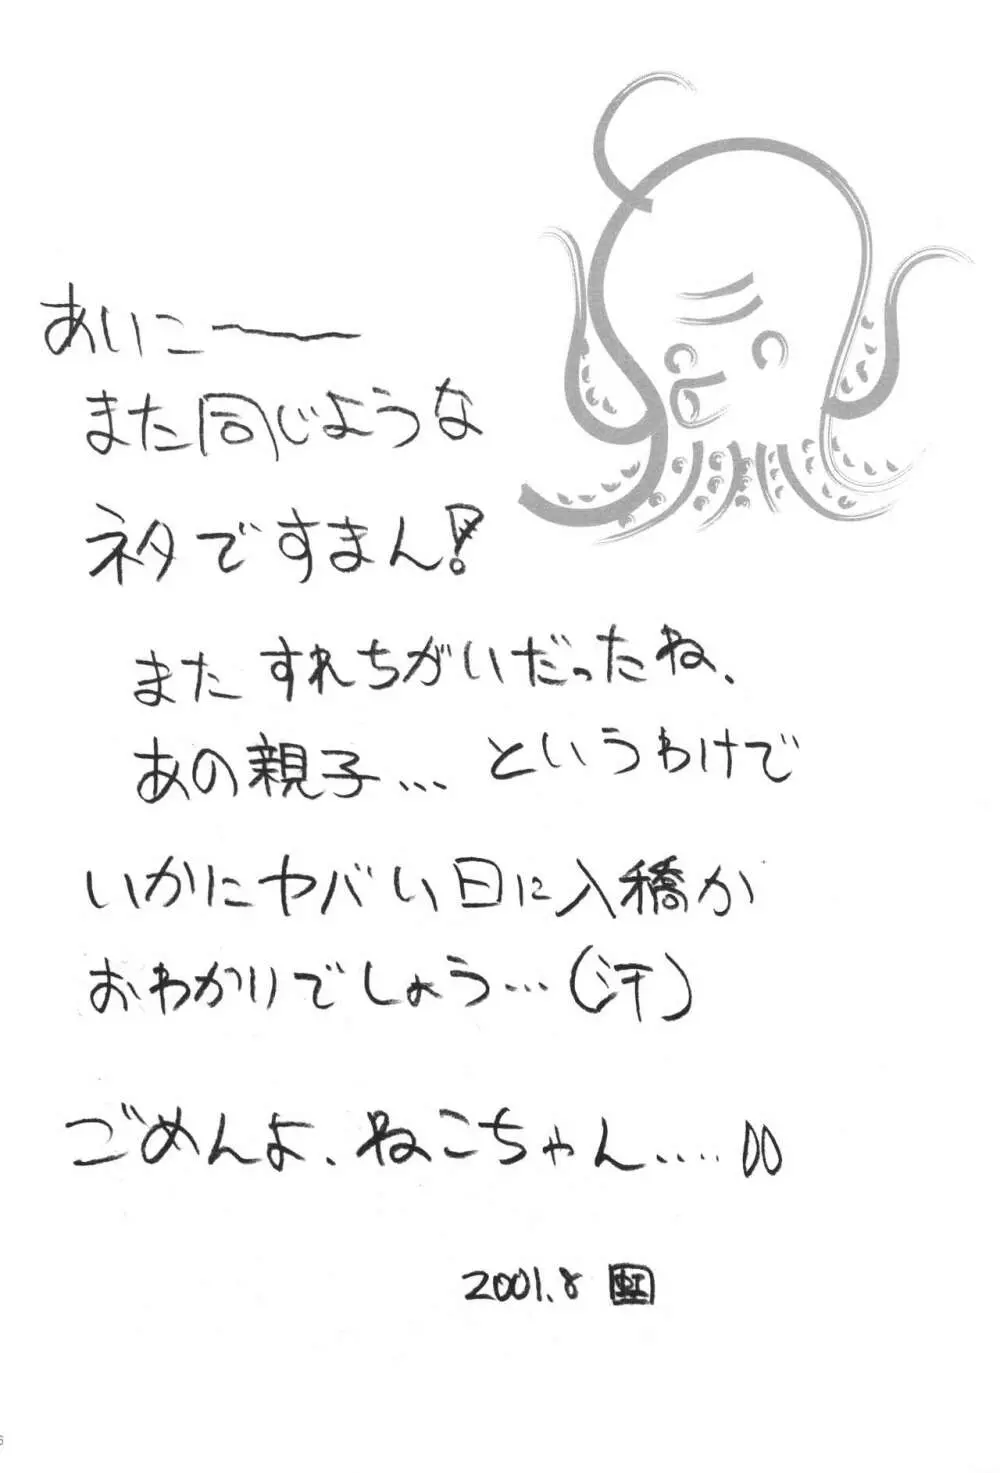 あいこ〜
また同じような
ネタですまん!
またすれちがいだったね、
あの親子… というわけで
いかにヤバい日に入稿か
おわかりでしょう…(汗)
ごめんよ、ねこちゃん.....
2001.8 虹
6